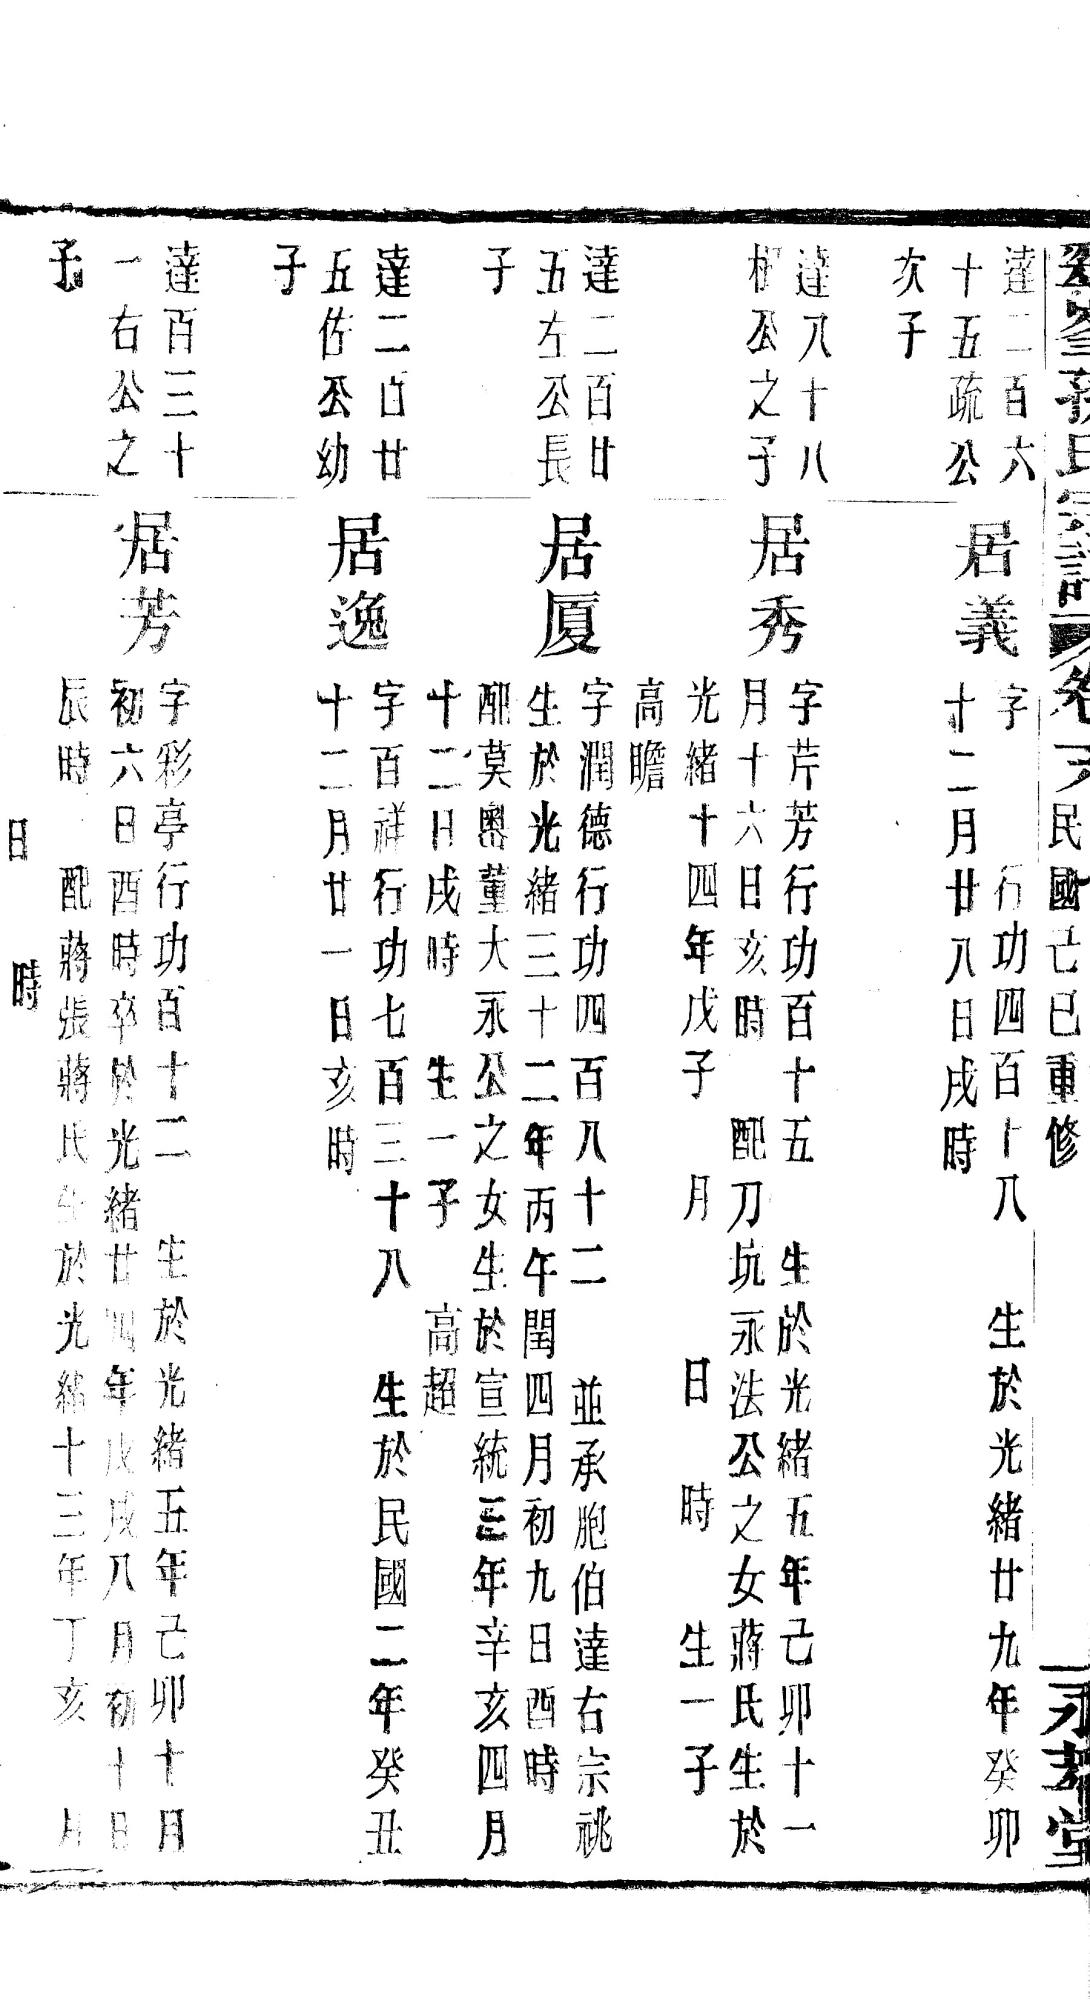 氏宗譜 卷 民國己巳重修 永孝堂
達二百六
十五疏公
次子
居義
字 行功四百十八 生於光緒廿九年癸卯
十二月廿八日戌時
達八十八
公之子
居秀
字芹芳行功百十五 生於光緒五年己卯十一
月十六日亥時 配刀坑永法公之女蔣氏生於
光緒十四年戊子 月 日 時 生一子
高瞻
達二百廿
五左公長
子
居厦
字潤德行功四百八十二 並承胞伯達右宗祧
生於光緒三十二年丙午閏四月初九日酉時
配莫奧董大永公之女生於宣統三年辛亥四月
十二日戌時 生一子 高超
達二百廿
五佐公幼
子
居逸
字百祥行功七百三十八 生於民國二年癸丑
十二月廿一日亥時
達百三十
一右公之
子
居芳
字彩亭行功百十二 生於光緒五年己卯十月
初六日酉時卒於光緒廿四年戊戌八月初十日
辰時 配蔣張蔣氏生於光緒十三年丁亥 月
日 時